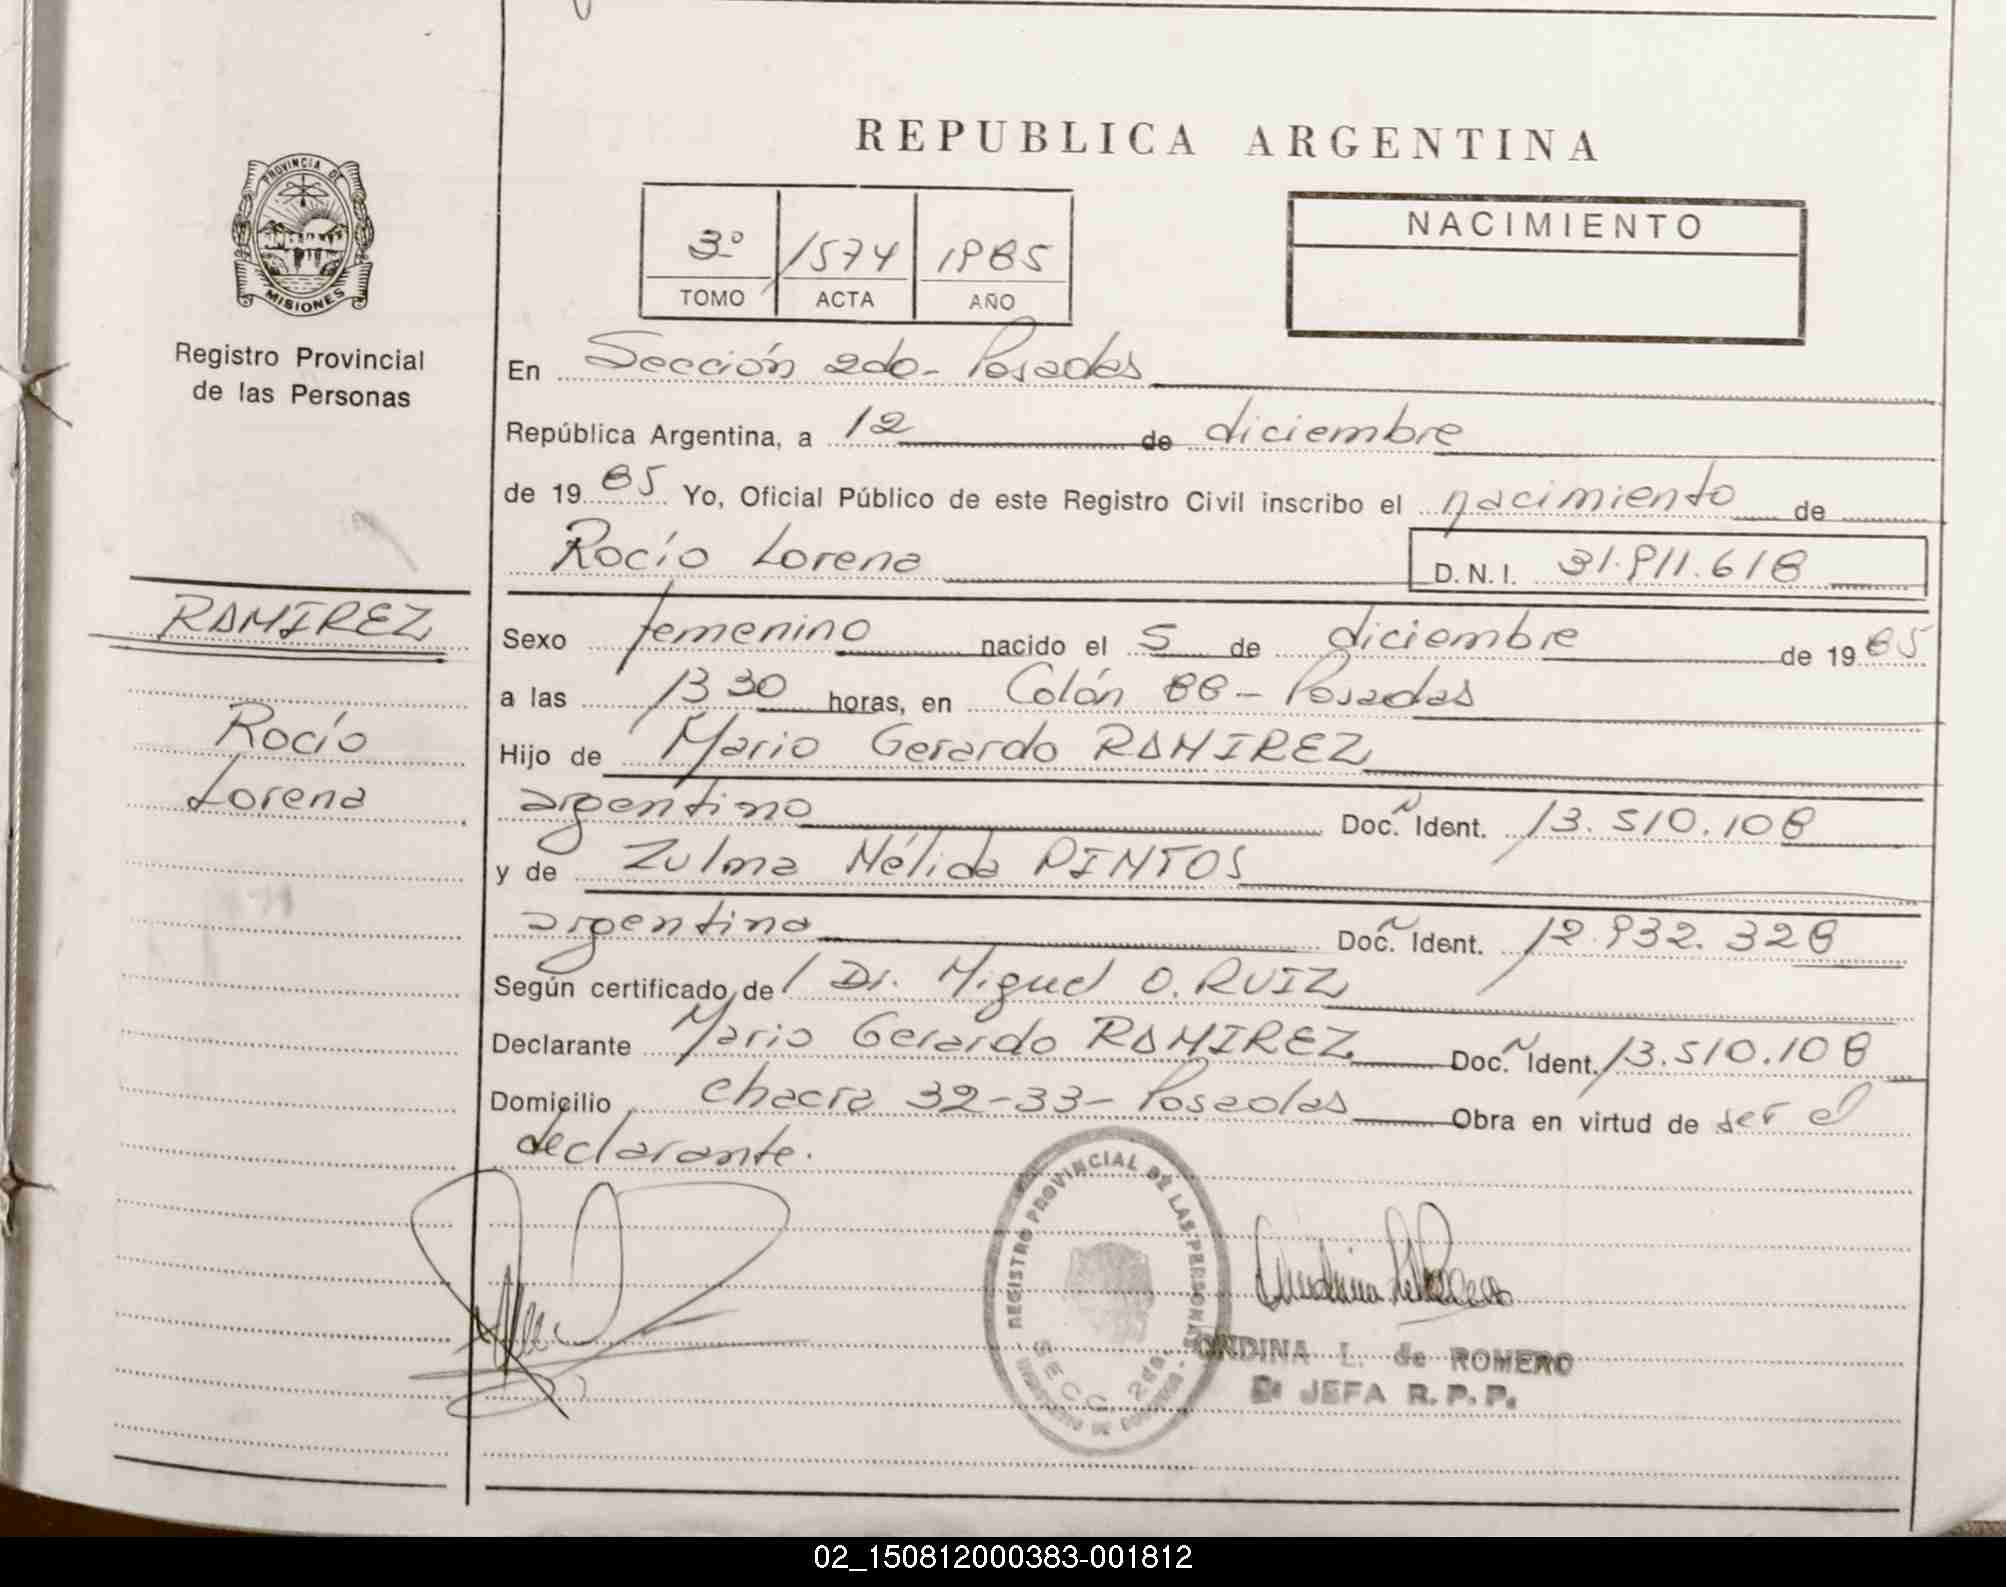 REPUBLICA ARGENTINA
PROVINCIA DE
MISIONES
Registro Provincial
de las Personas
3º 1574 1985
TOMO ACTA AÑO
NACIMIENTO
En Sección 2da- Posadas
República Argentina, a 12 de diciembre
de 1985 Yo, Oficial Público de este Registro Civil inscribo el nacimiento de
Rocío Lorena D.N.I. 31.911.618
RAMIREZ
Rocío
Lorena
Sexo femenino nacido el 5 de diciembre de 1985
a las 13 30 horas, en Colón 88- Posadas
Hijo de Mario Gerardo RAMIREZ
argentino Doc. Ident. 13.510.108
y de Zulma Nélida PINTOS
argentina Doc. Ident. 12.932.328
Según certificado de Dr. Miguel O. RUIZ
Declarante Mario Gerardo RAMIREZ Doc. Ident. 13.510.108
Domicilio chacra 32-33- Posadas Obra en virtud de ser el
declarante.
REGISTRO PROVINCIAL DE LAS PERSONAS
SECC. 2da.
ONDINA L. de ROMERO
JEFA R.P.P.
02_150812000383-001812